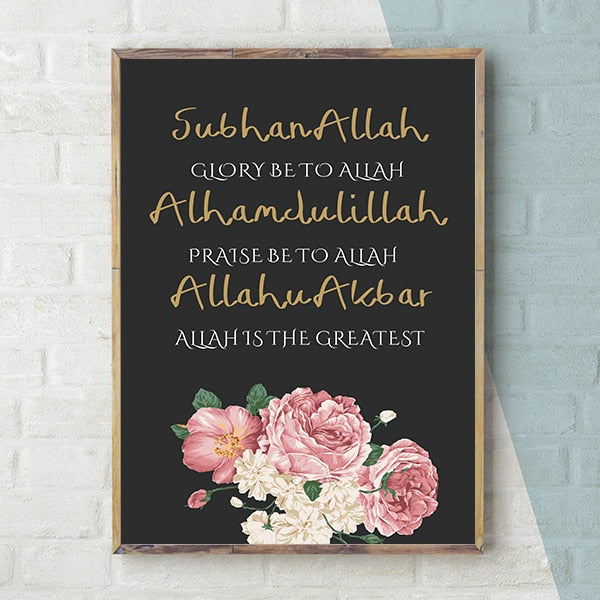 SubhanAllah
GLORY BE TO ALLAH
Alhamdulillah
PRAISE BE TO ALLAH
AllahuAkbar
ALLAH IS THE GREATEST